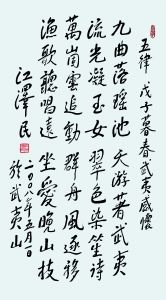 五律 戊子暮春武夷感懷
九曲落瑶池 天游著武夷
流光凝玉女 翠色染笙诗
萬崗雲追動 群舟風逐移
漁歌聽唱遠 坐愛晚山枝
江澤民
二〇〇八年五月一日
於武夷山